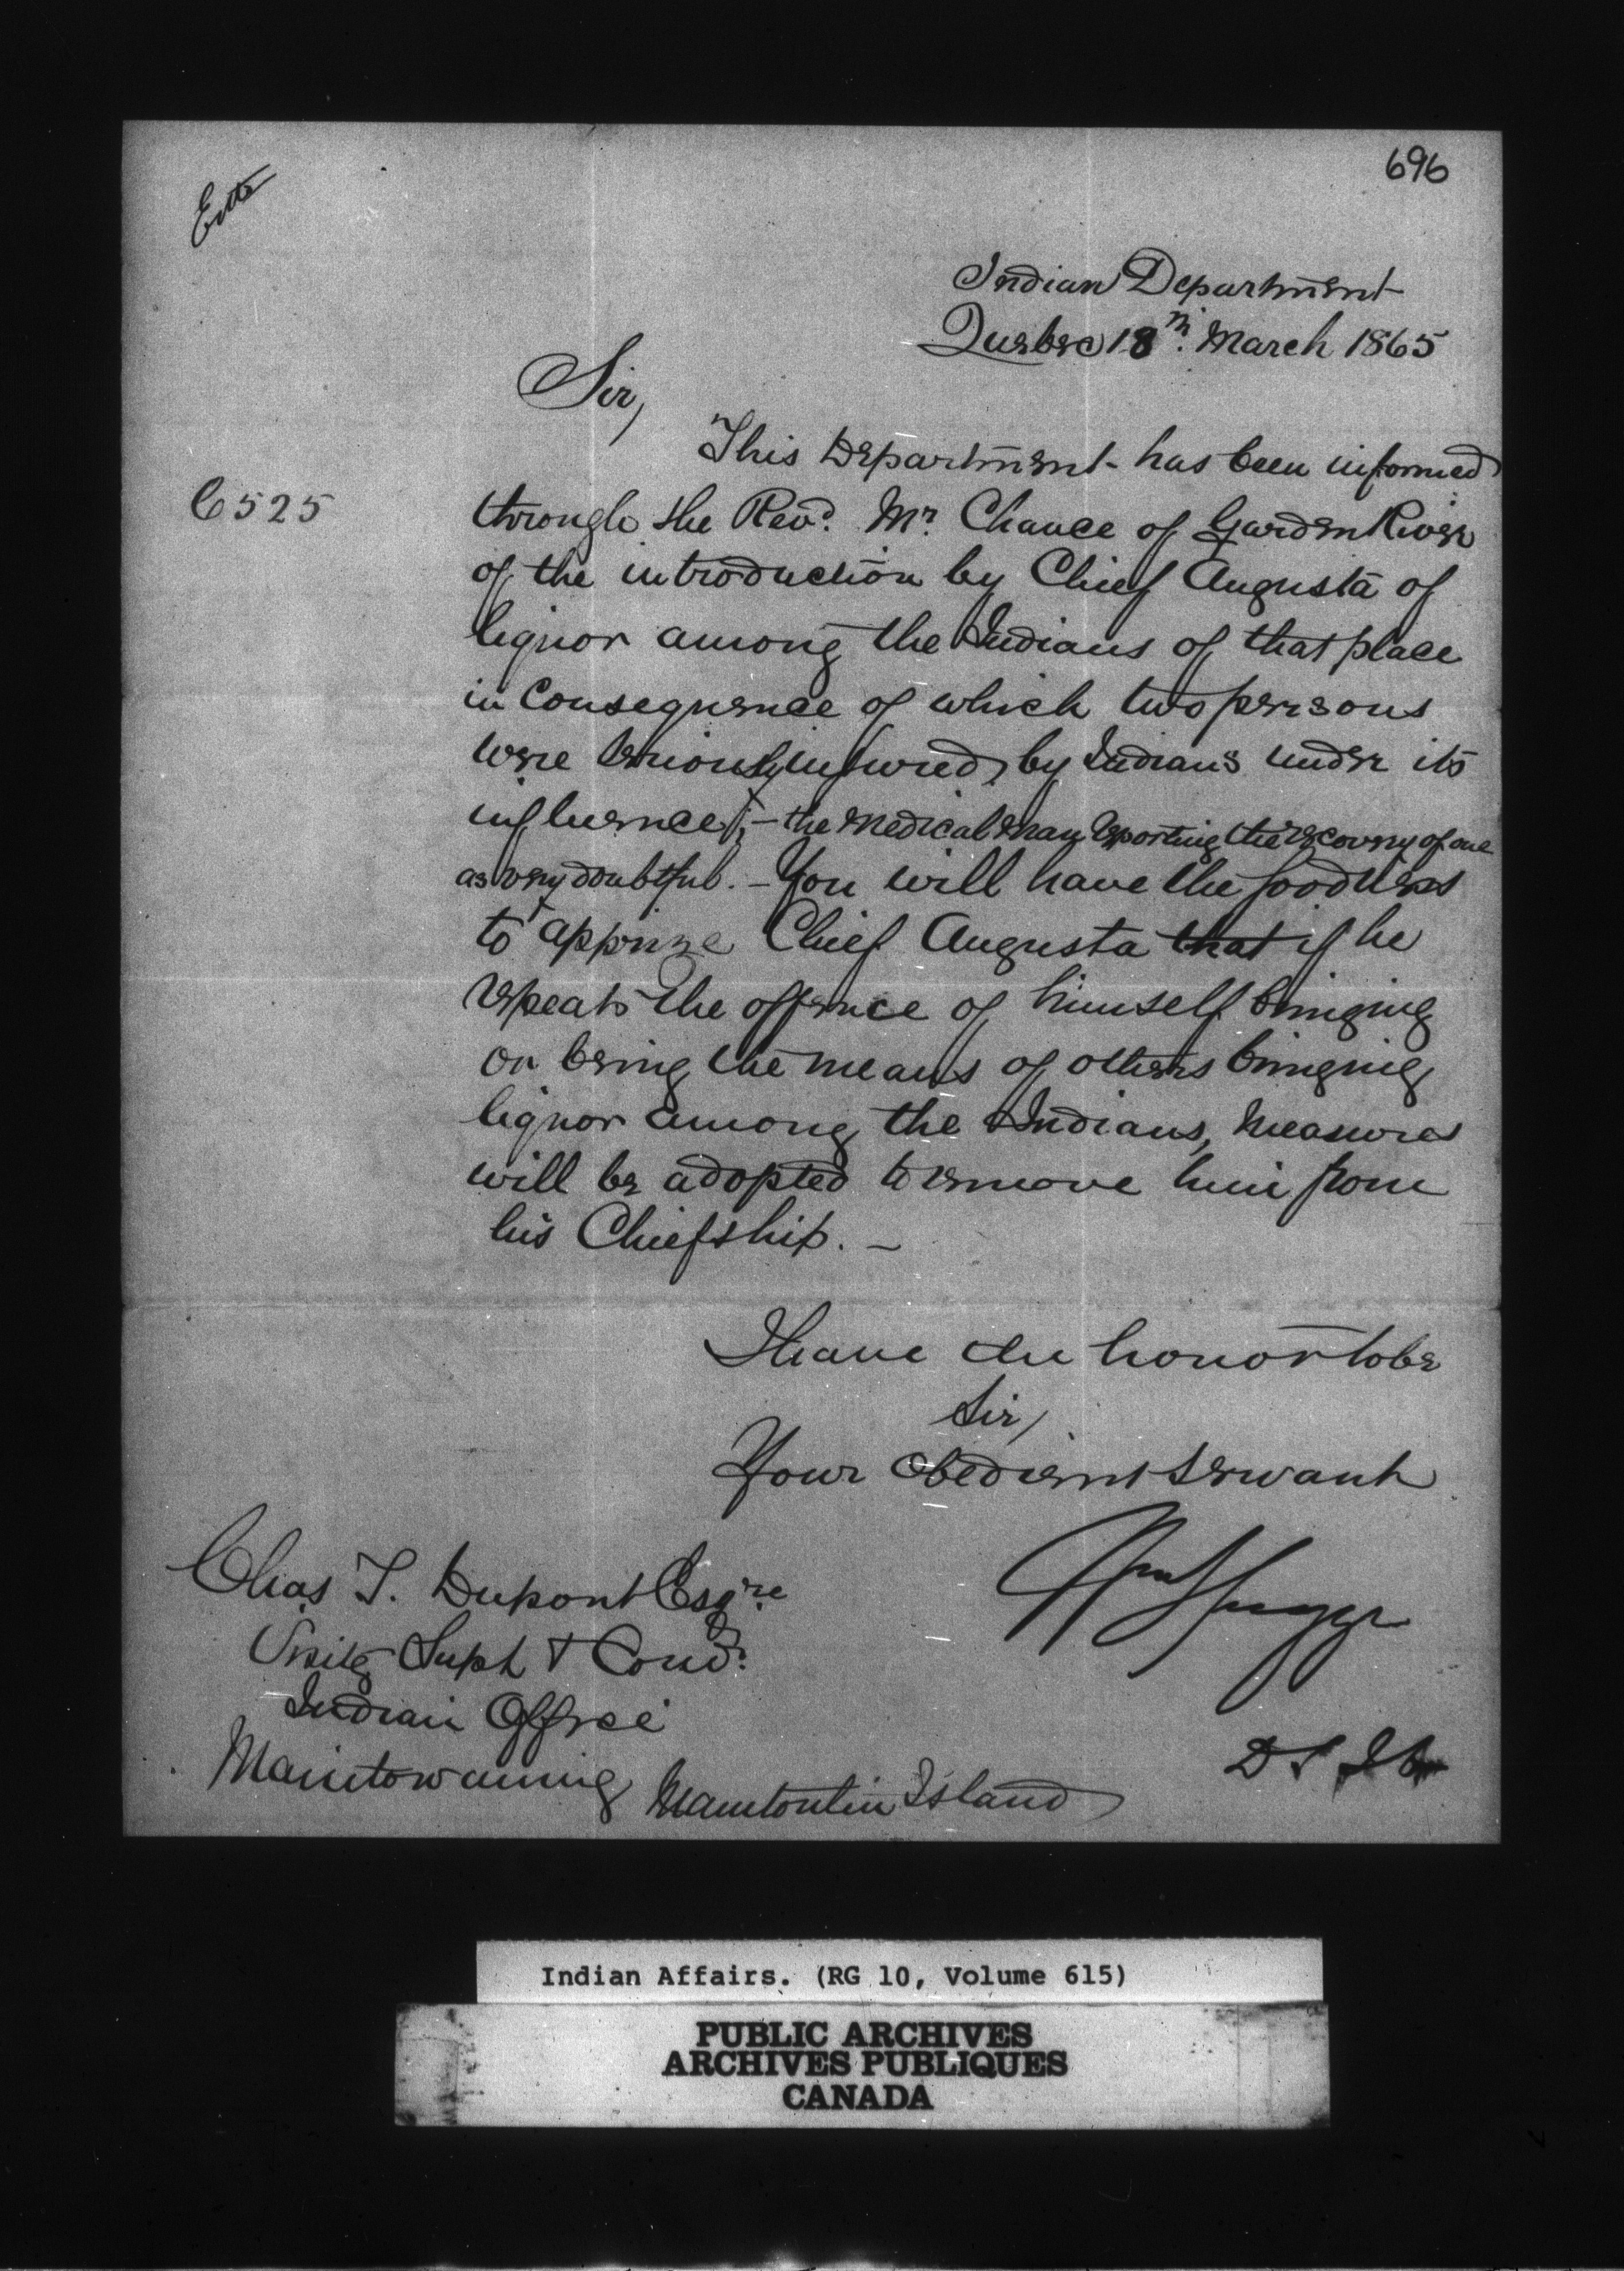 696
Entd
Indian Department
Quebec 18th. March 1865
Sir,
This Department has been informed
C525
through the Revd. Mr. Chance of Garden River
of the introduction by Chief Augusta of
liquor among the Indians of that place
in consequence of which two persons
were seriously injured, by Indians under its
influence; - the medical man reporting the recovery of one
as very doubtful. - You will have the goodness
to apprize Chief Augusta that if he
repeats the offence of himself bringing
or being the means of others bringing
liquor among the Indians, measures
will be adopted to remove him from
his Chiefship. -
I have the honor to be
Sir,
Your obedient servant
Chas T. Dupont Esqre.
Visitg Supt & Comr.
Indian Office
Manitowaning Manitoulin Island
D S I A
Indian Affairs. (RG 10, Volume 615)
PUBLIC ARCHIVES
ARCHIVES PUBLIQUES
CANADA